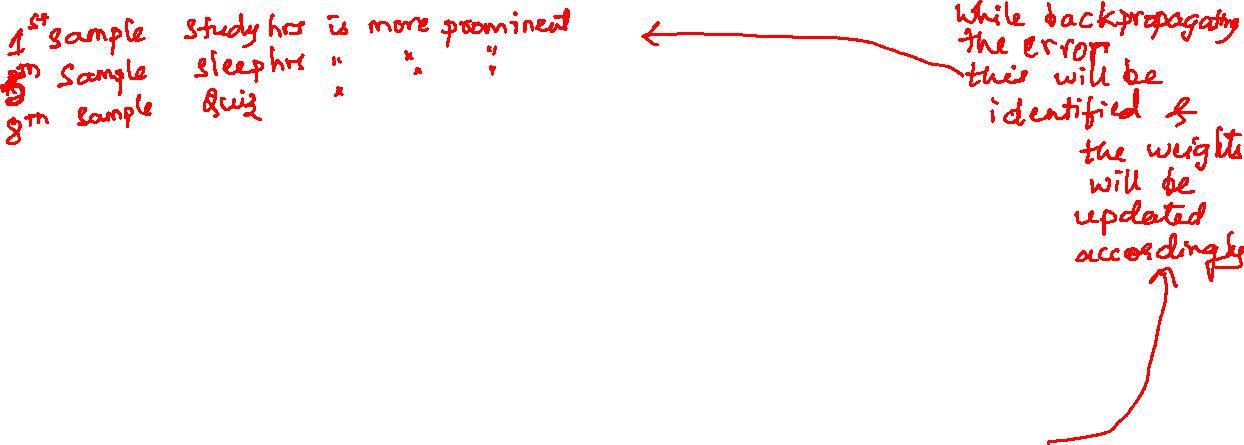 1st sample study hrs is more prominent
5th sample sleep hrs " " "
8th sample Quiz " " "
While backpropagating
the error
this will be
identified &
the weights
will be
updated
accordingly